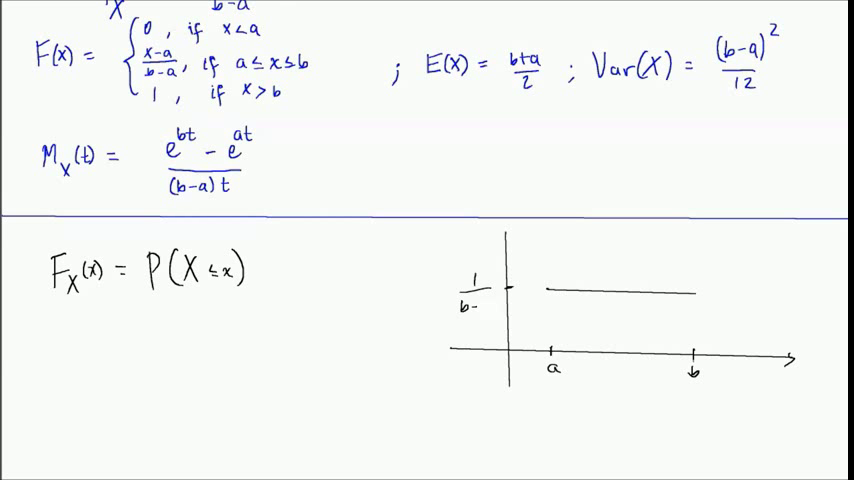 X b-a
F(x) = { 0 , if x<a
x-a/b-a , if a≤x≤b ; E(X) = b+a/2 ; Var(X) = (b-a)²/12
1 , if x>b
M_X(t) = e^bt - e^at / (b-a)t
F_X(x) = P(X ≤ x)
1/b-
a b